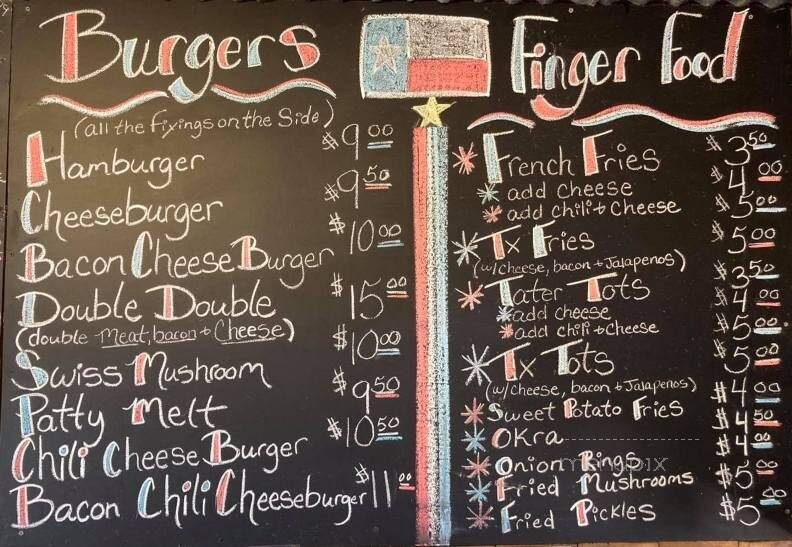 Burgers
(all the fixings on the Side)
Hamburger $9.00
Cheeseburger $9.50
Bacon Cheese Burger $10.00
Double Double $15.00
(double meat, bacon + Cheese)
Swiss Mushroom $10.00
Patty Melt $9.50
Chili Cheese Burger $10.50
Bacon Chili Cheeseburger $11.00
Finger Food
* French Fries $3.50
* add cheese $4.00
* add chili + Cheese $5.00
* Tx Fries $5.00
(w/cheese, bacon + Jalapenos)
* Tater Tots $3.50
* add cheese $4.00
* add chili + cheese $5.00
* Tx Tots $5.00
(w/cheese, bacon + Jalapenos)
* Sweet Potato Fries $4.00
* Okra $4.50
* Onion Rings $4.00
* Fried Mushrooms $5.00
* Fried Pickles $5.00
menupix